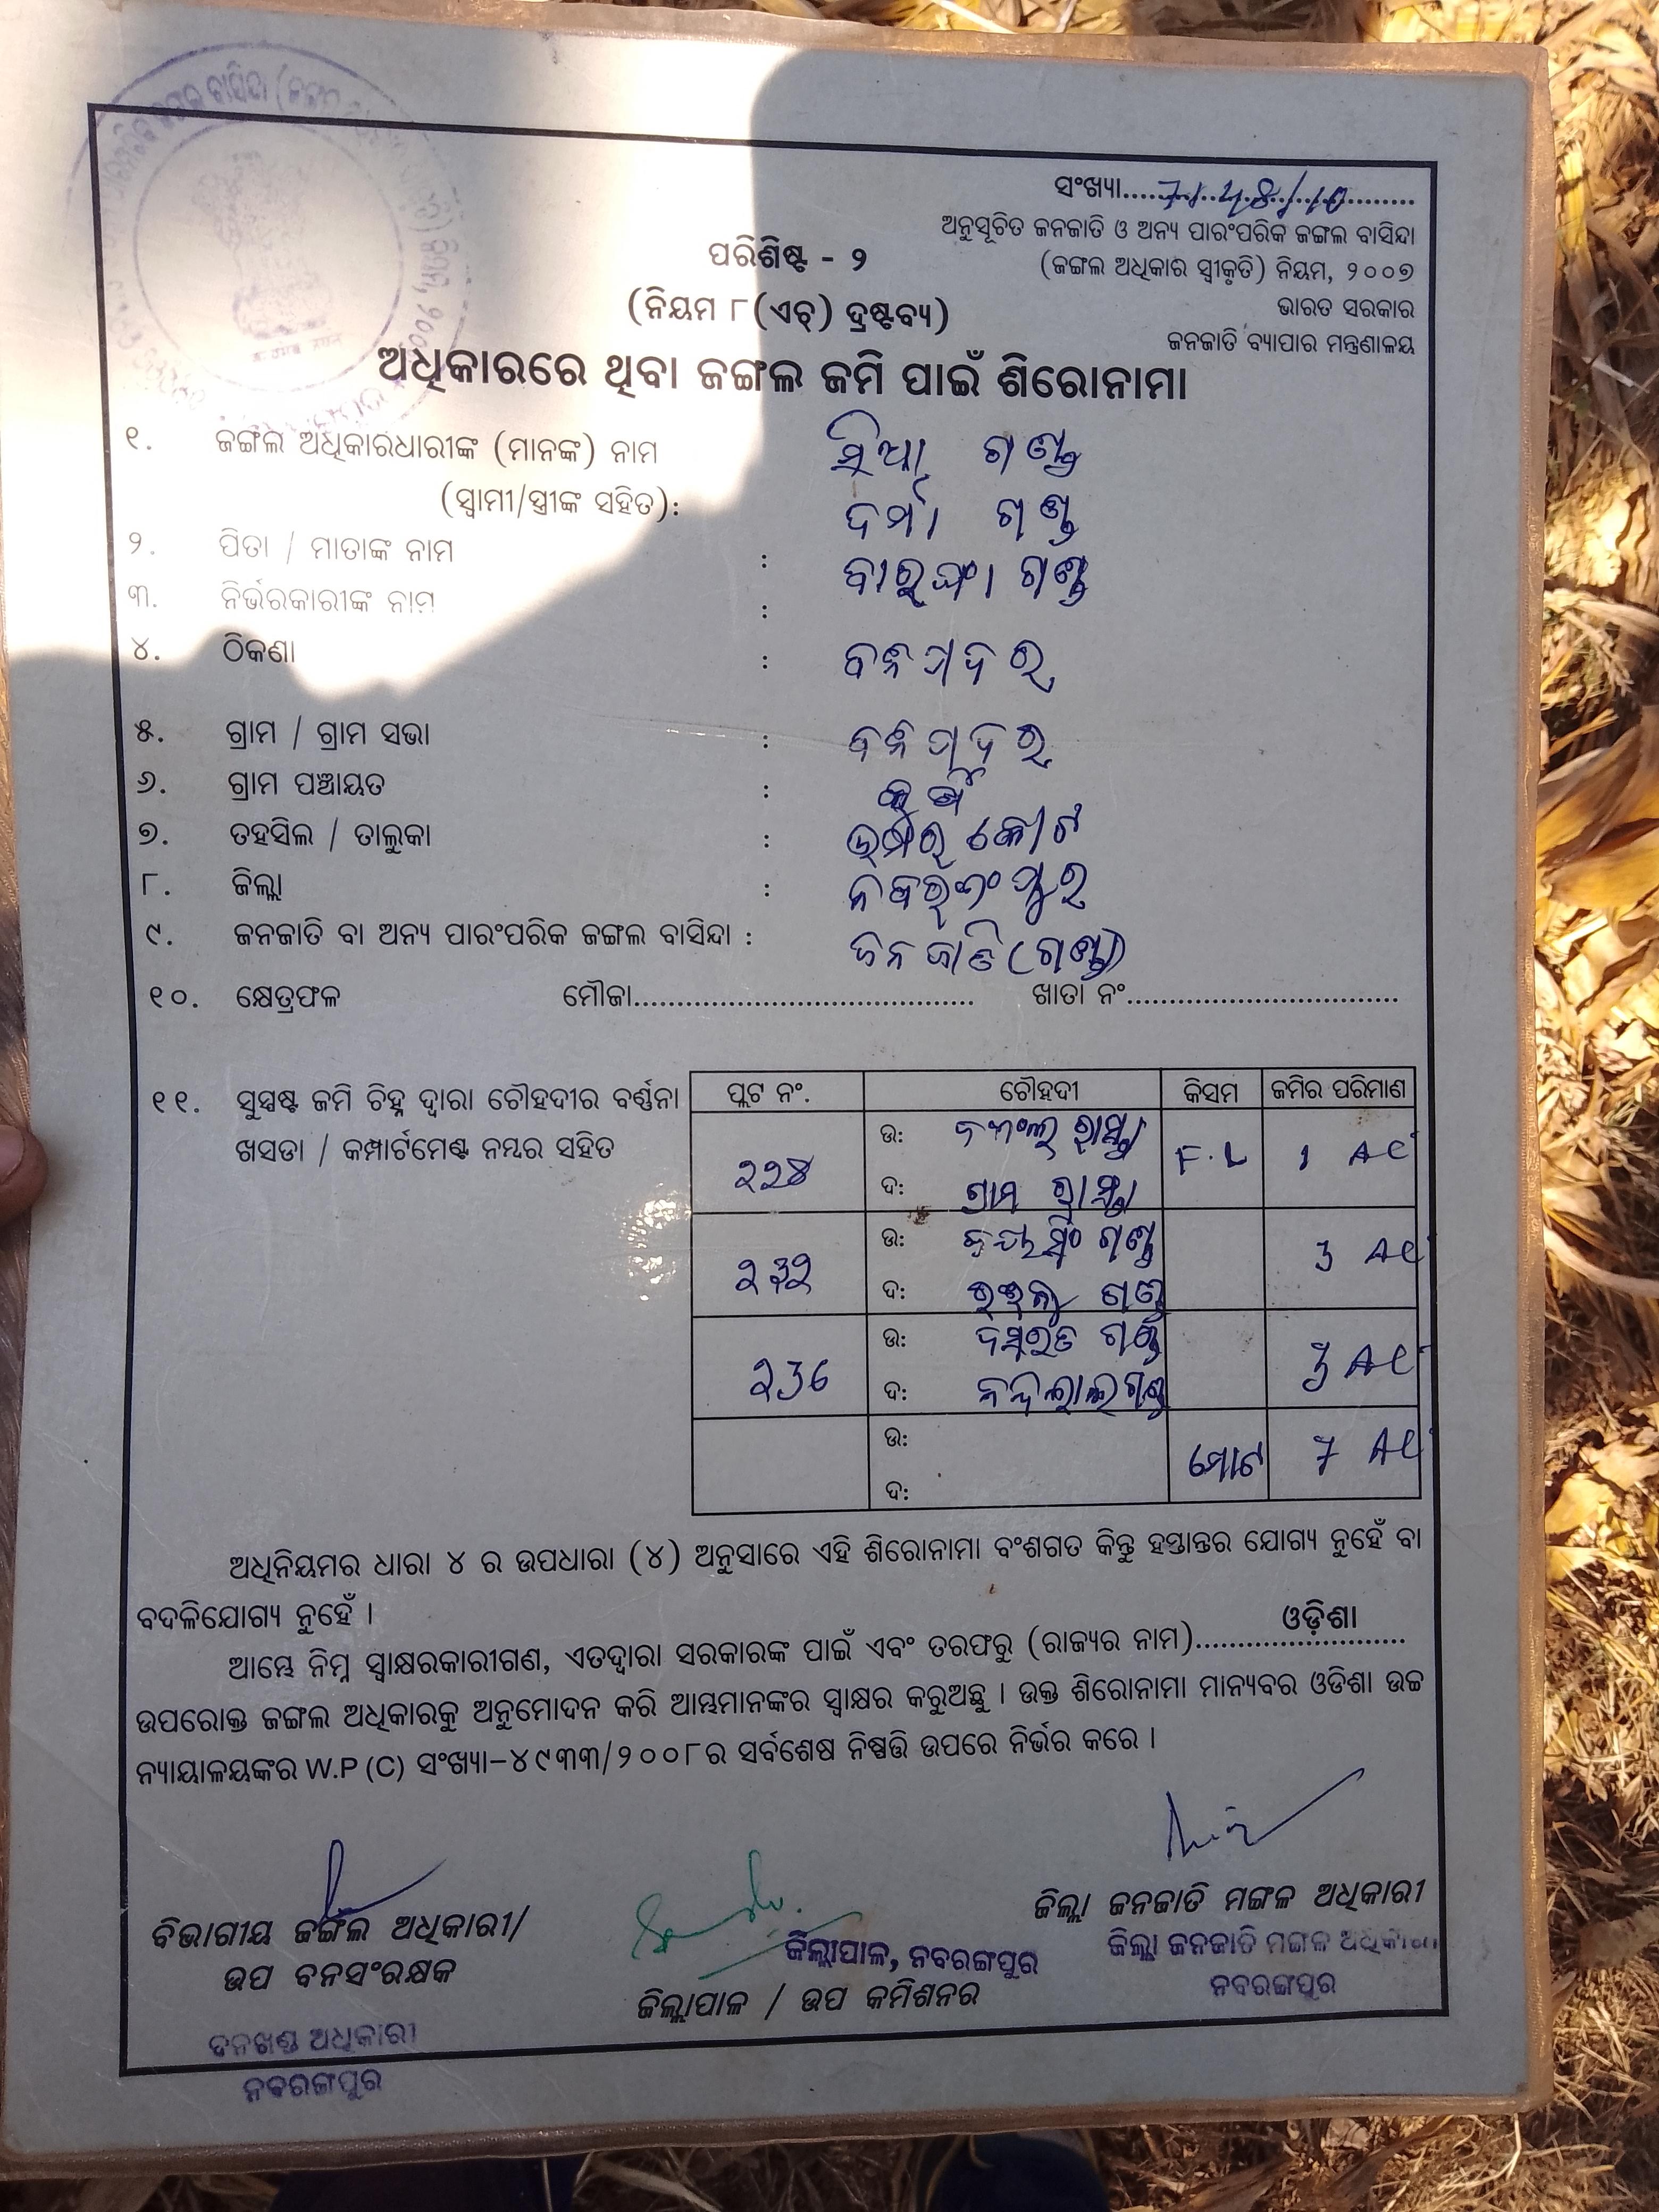 ସଂଖ୍ୟା....7148/10....
ଅନୁସୂଚିତ ଜନଜାତି ଓ ଅନ୍ୟ ପାରଂପରିକ ଜଙ୍ଗଲ ବାସିନ୍ଦା
(ଜଙ୍ଗଲ ଅଧିକାର ସ୍ୱୀକୃତି) ନିୟମ, ୨୦୦୭
ଭାରତ ସରକାର
ଜନଜାତି ବ୍ୟାପାର ମନ୍ତ୍ରଣାଳୟ
ପରିଶିଷ୍ଟ - ୨
(ନିୟମ ୮(ଏଚ୍) ଦ୍ରଷ୍ଟବ୍ୟ)
ଅଧିକାରରେ ଥିବା ଜଙ୍ଗଲ ଜମି ପାଇଁ ଶିରୋନାମା
୧. ଜଙ୍ଗଲ ଅଧିକାରଧାରୀଙ୍କ (ମାନଙ୍କ) ନାମ ଗଣ୍ଡ
(ସ୍ୱାମୀ/ସ୍ତ୍ରୀଙ୍କ ସହିତ): ଗଣ୍ଡ
୨. ପିତା / ମାତାଙ୍କ ନାମ : ଗଣ୍ଡ
୩. ନିର୍ଭରକାରୀଙ୍କ ନାମ :
୪. ଠିକଣା :
୫. ଗ୍ରାମ / ଗ୍ରାମ ସଭା :
୬. ଗ୍ରାମ ପଞ୍ଚାୟତ :
୭. ତହସିଲ / ତାଲୁକା : ଉମରକୋଟ
୮. ଜିଲ୍ଲା : ନବରଂଗପୁର
୯. ଜନଜାତି ବା ଅନ୍ୟ ପାରଂପରିକ ଜଙ୍ଗଲ ବାସିନ୍ଦା : ଜନଜାତି (ଗଣ୍ଡ)
୧୦. କ୍ଷେତ୍ରଫଳ ମୌଜା........ ଖାତା ନଂ........
୧୧. ସୁସ୍ପଷ୍ଟ ଜମି ଚିହ୍ନ ଦ୍ୱାରା ଚୌହଦୀର ବର୍ଣ୍ଣନା
ଖସଡା / କମ୍ପାର୍ଟମେଣ୍ଟ ନମ୍ବର ସହିତ
ପ୍ଲଟ ନଂ. ଚୌହଦୀ କିସମ ଜମିର ପରିମାଣ
୨୨୪ ଉ: ଜଂଗଲ ରାସ୍ତା F.L 1 AC
ଦ: ଗ୍ରାମ ରାସ୍ତା
୨୩୨ ଉ: ଜୟସିଂ ଗଣ୍ଡ 3 AC
ଦ: ଗଣ୍ଡ
236 ଉ: ଦସରତ ଗଣ୍ଡ 3 AC
ଦ: ନନ୍ଦଲାଲ ଗଣ୍ଡ
ଉ: ମୋଟ 7 AC
ଦ:
ଅଧିନିୟମର ଧାରା ୪ ର ଉପଧାରା (୪) ଅନୁସାରେ ଏହି ଶିରୋନାମା ବଂଶଗତ କିନ୍ତୁ ହସ୍ତାନ୍ତର ଯୋଗ୍ୟ ନୁହେଁ ବା
ବଦଳିଯୋଗ୍ୟ ନୁହେଁ ।
ଆମ୍ଭେ ନିମ୍ନ ସ୍ୱାକ୍ଷରକାରୀଗଣ, ଏତଦ୍ୱାରା ସରକାରଙ୍କ ପାଇଁ ଏବଂ ତରଫରୁ (ରାଜ୍ୟର ନାମ)....ଓଡ଼ିଶା....
ଉପରୋକ୍ତ ଜଙ୍ଗଲ ଅଧିକାରକୁ ଅନୁମୋଦନ କରି ଆମ୍ଭମାନଙ୍କର ସ୍ୱାକ୍ଷର କରୁଅଛୁ । ଉକ୍ତ ଶିରୋନାମା ମାନ୍ୟବର ଓଡିଶା ଉଚ୍ଚ
ନ୍ୟାୟାଳୟଙ୍କର W.P (C) ସଂଖ୍ୟା-୪୯୩୩/୨୦୦୮ର ସର୍ବଶେଷ ନିଷ୍ପତ୍ତି ଉପରେ ନିର୍ଭର କରେ ।
ବିଭାଗୀୟ ଜଙ୍ଗଲ ଅଧିକାରୀ/
ଉପ ବନସଂରକ୍ଷକ
ବନଖଣ୍ଡ ଅଧିକାରୀ
ନବରଙ୍ଗପୁର
ଜିଲ୍ଲାପାଳ, ନବରଙ୍ଗପୁର
ଜିଲ୍ଲାପାଳ / ଉପ କମିଶନର
ଜିଲ୍ଲା ଜନଜାତି ମଙ୍ଗଳ ଅଧିକାରୀ
ଜିଲ୍ଲା ଜନଜାତି ମଙ୍ଗଳ ଅଧିକାରୀ
ନବରଙ୍ଗପୁର